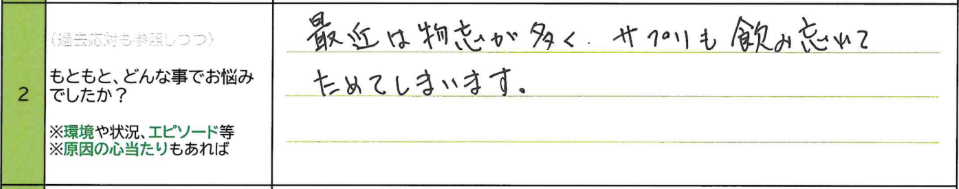 (過去応対も参照しつつ)
2
もともと、どんな事でお悩み
でしたか？
※環境や状況、エピソード等
※原因の心当たりもあれば
最近は物忘が多く、サプリも飲み忘れて
ためてしまいます。